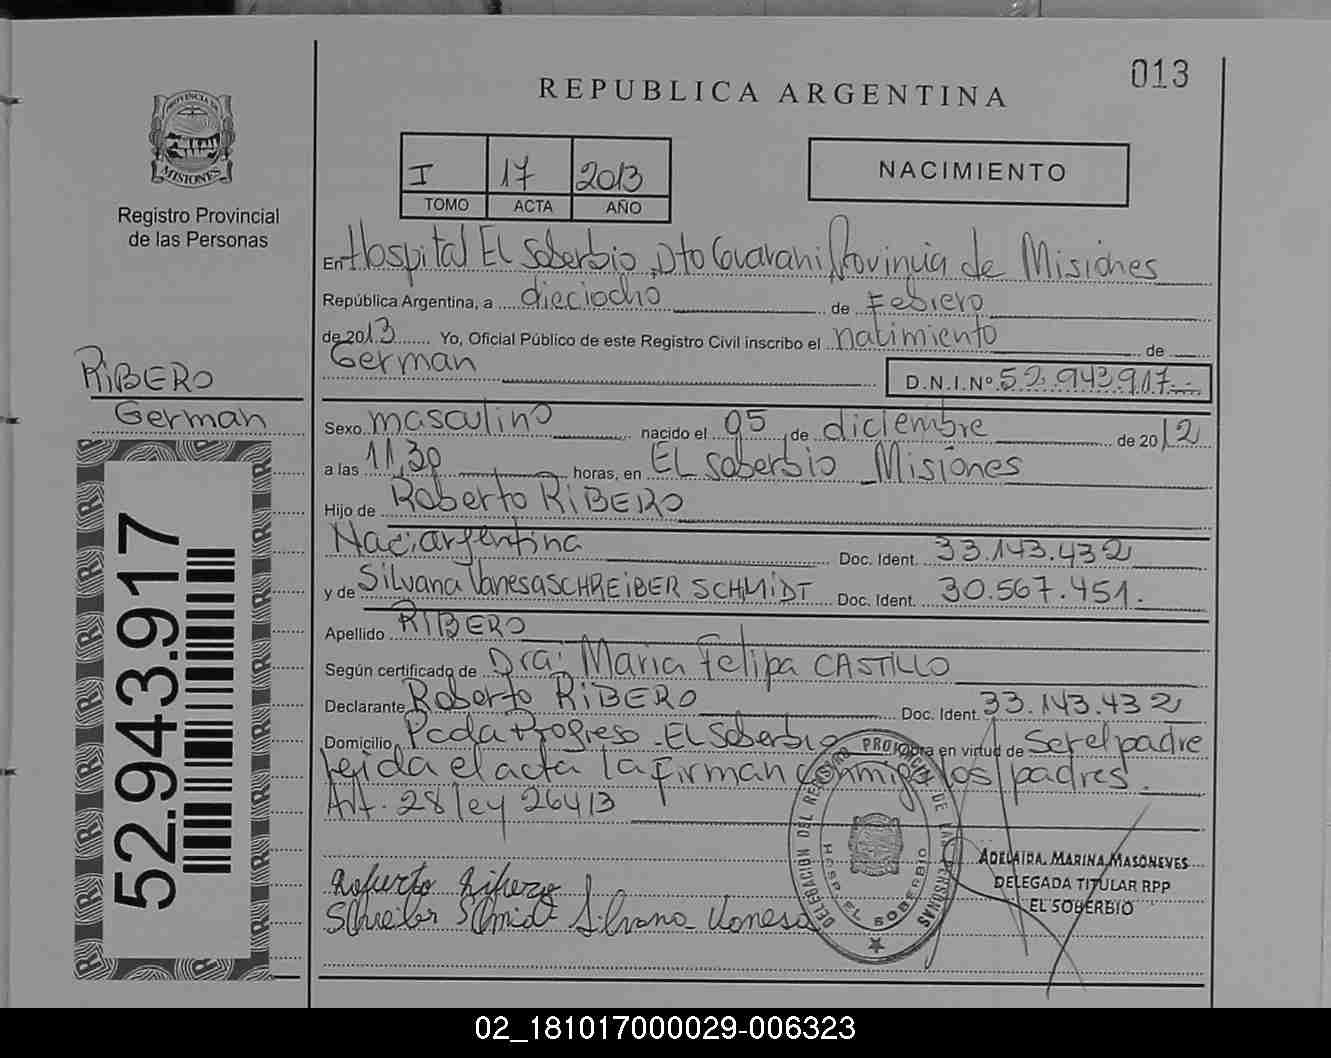 013
REPUBLICA ARGENTINA
PROVINCIA DE
MISIONES
Registro Provincial
de las Personas
I 17 2013
TOMO ACTA AÑO
NACIMIENTO
En Hospital El Soberbio, Dto Guarani, Provincia de Misiones
República Argentina, a dieciocho de Febrero
de 2013 Yo, Oficial Público de este Registro Civil inscribo el nacimiento de
German
D.N.I.Nº 52.943.917
RIBERO
German
Sexo masculino nacido el 05 de diciembre de 2012
a las 11,30 horas, en EL Soberbio Misiones
Hijo de Roberto RIBERO
Nac: argentina Doc. Ident. 33.143.432
y de Silvana Vanesa SCHREIBER SCHMIDT Doc. Ident. 30.567.451.
Apellido RIBERO
Según certificado de Dra: Maria Felipa CASTILLO
Declarante Roberto RIBERO Doc. Ident. 33.143.432
Domicilio Pcda Progreso - EL Soberbio obra en virtud de ser el padre
leida el acta la firman conmigo los padres.
Art. 28 ley 26413
52.943.917
Roberto Ribero
Schreiber Schmidt Silvana Vanesa
DELEGACION DEL REGISTRO PROVINCIAL DE LAS PERSONAS
HOSP. EL SOBERBIO
ADELAIDA MARINA MASONEVES
DELEGADA TITULAR RPP
EL SOBERBIO
02_181017000029-006323